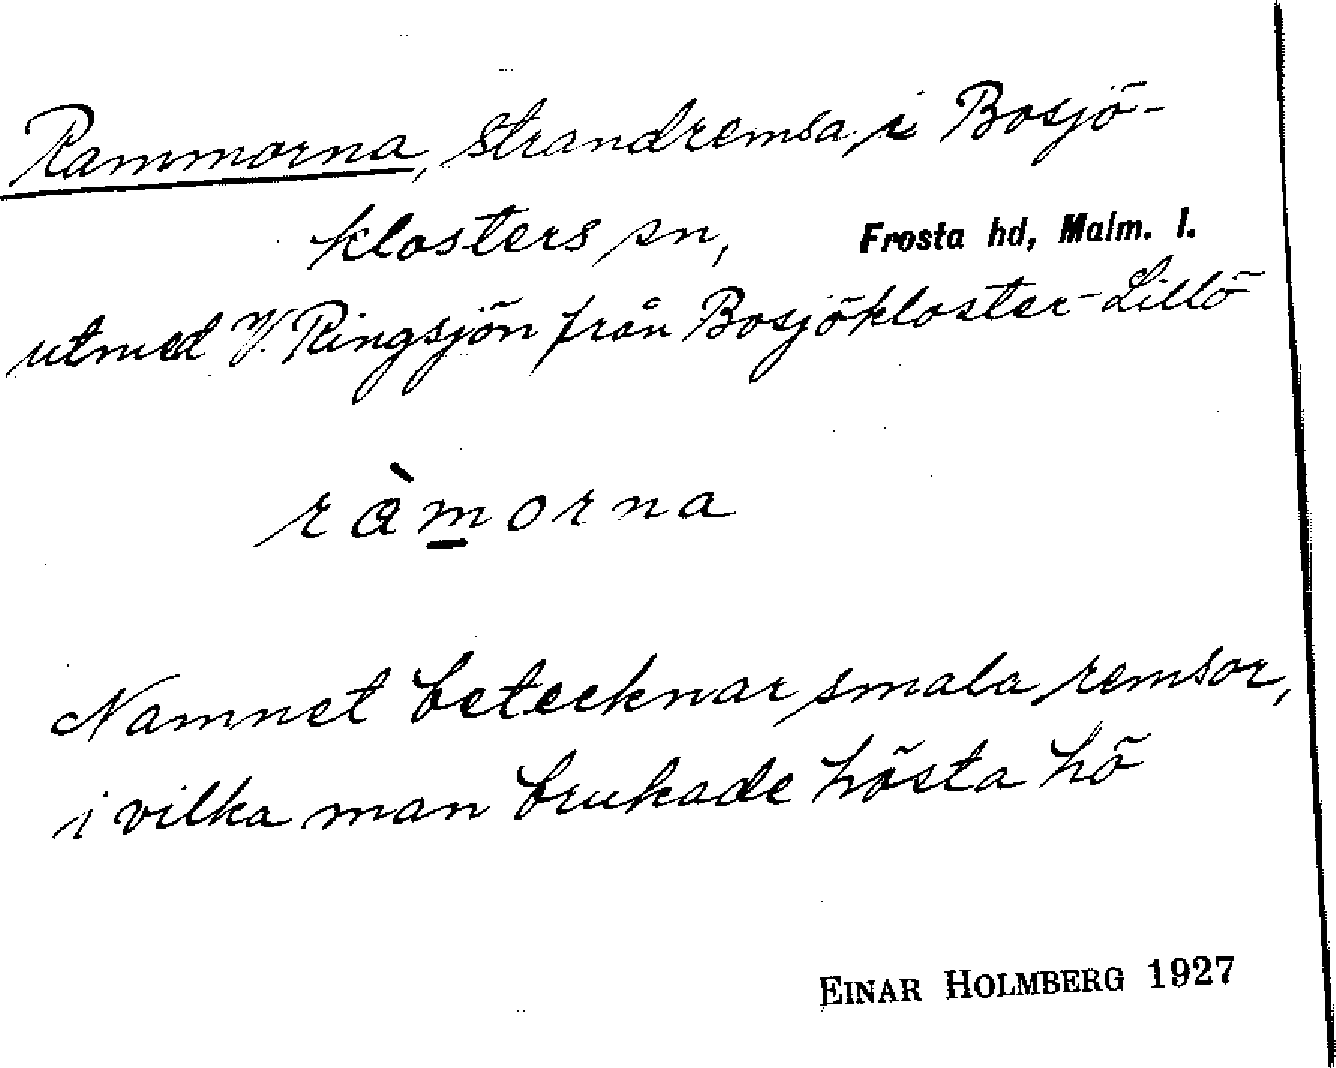 Rammorna, strandremsa i Bosjö-
klosters sn, Frosta hd, Malm. l.
utmed V. Ringsjön från Bosjökloster-Lillö
ràm̲orna
Namnet betecknar smala remsor,
i vilka man brukade hösta hö
EINAR HOLMBERG 1927